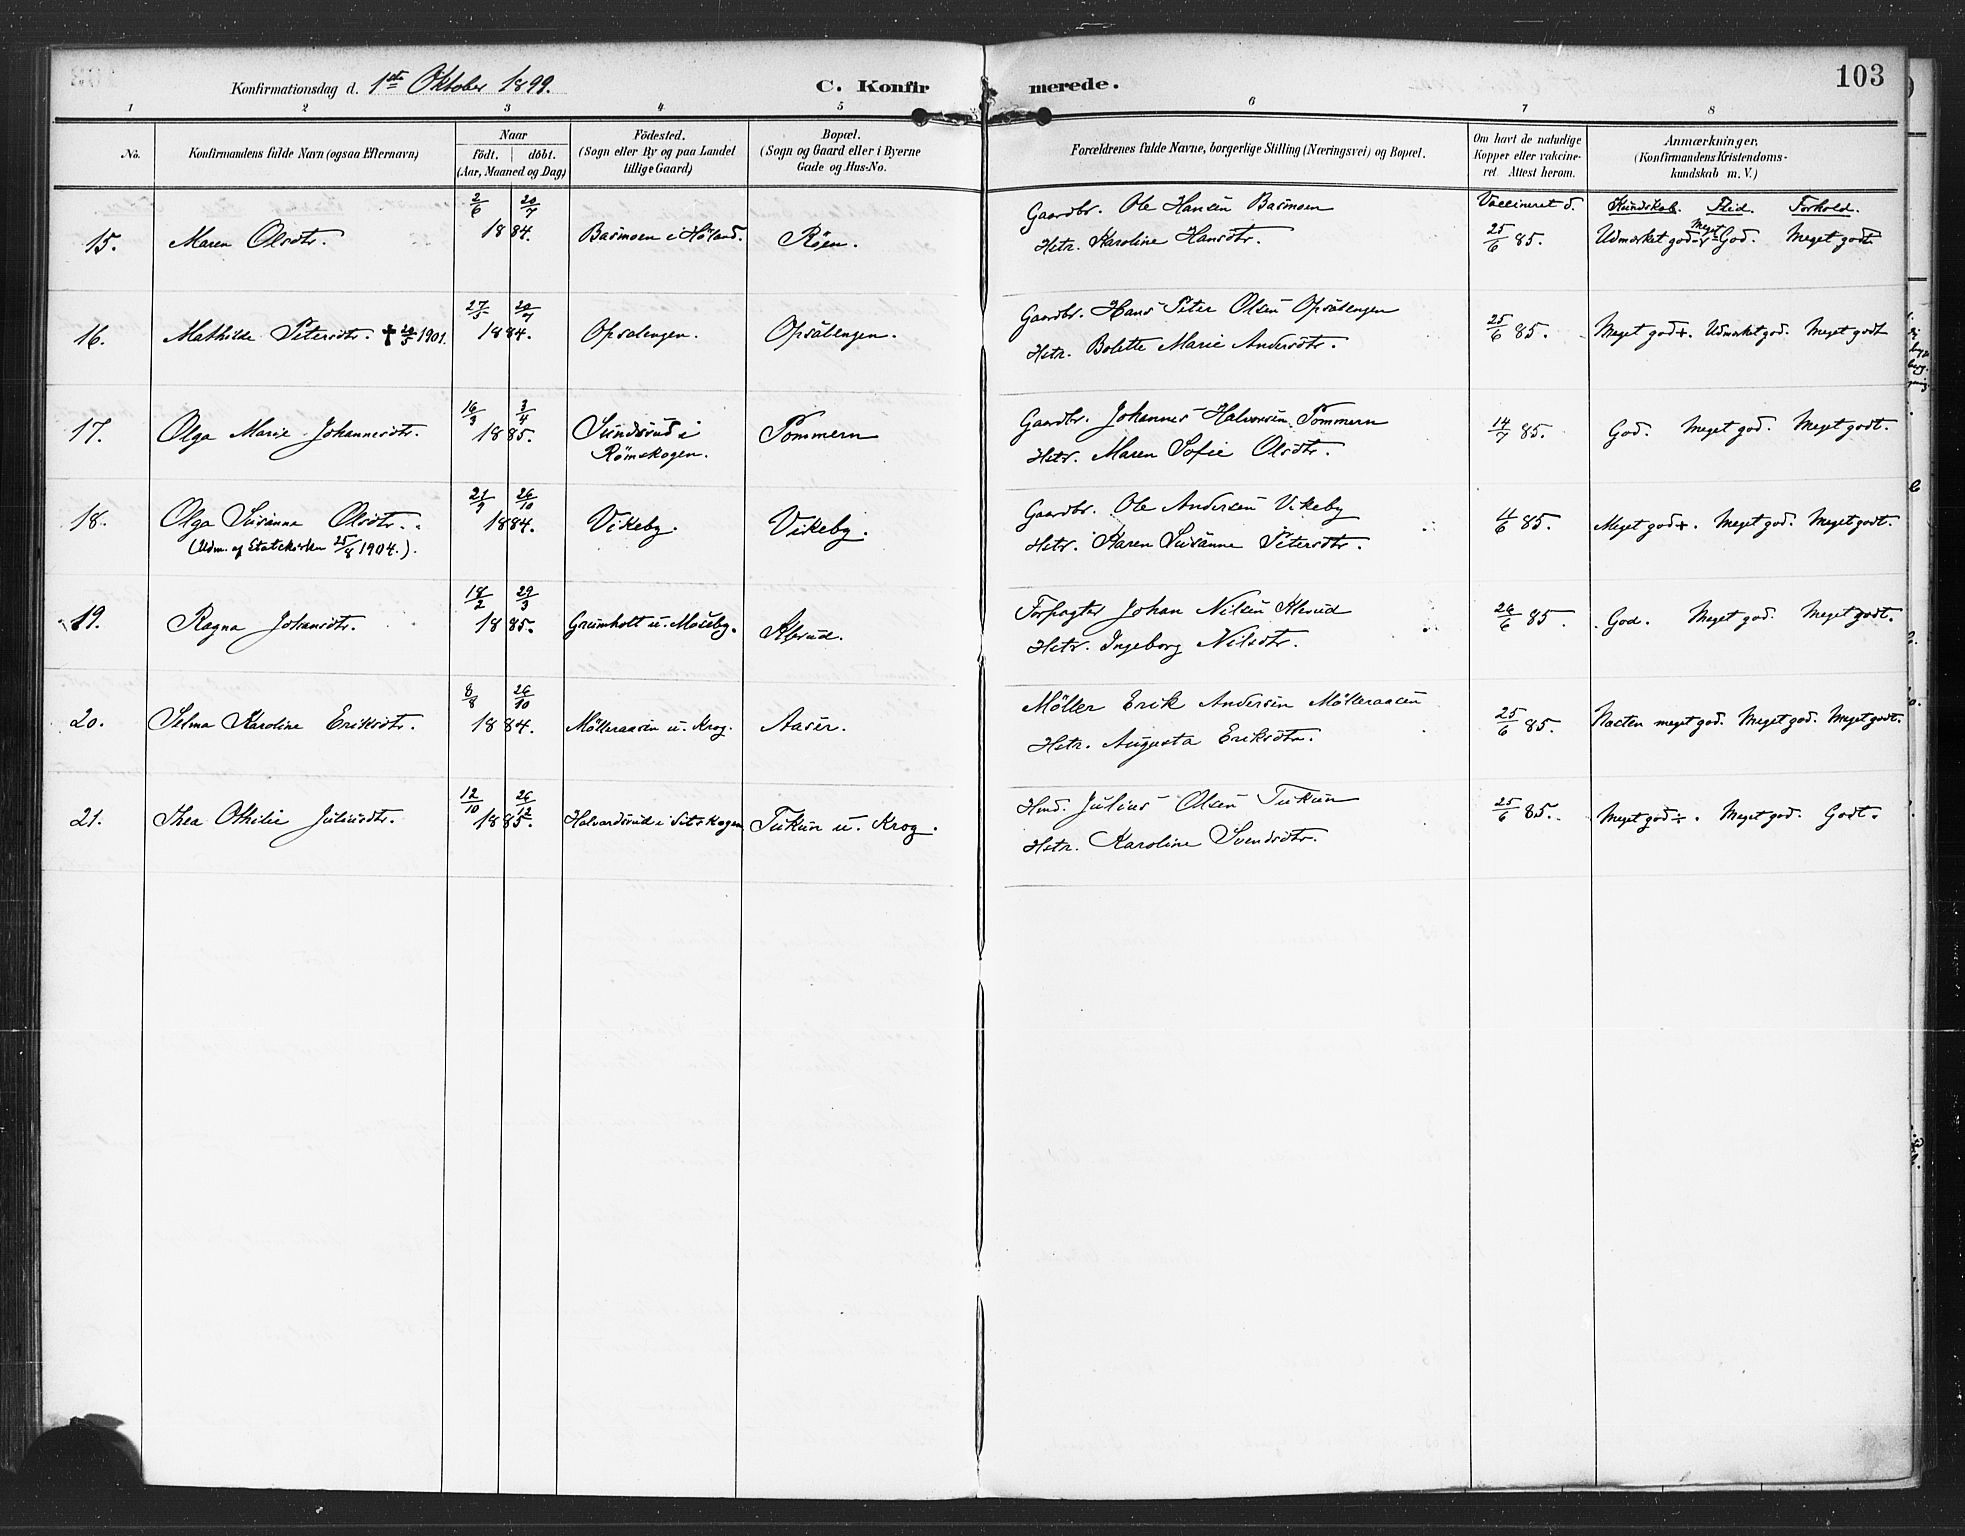 Konfirmationsdag d. 1ste Oktober 1899. C. Konfirmerede. 103
1 2 3 4 5 6 7 8
No. Konfirmandens fulde Navn (ogsaa Efternavn) Naar födt. döbt. (Aar, Maaned og Dag) Födested. (Sogn eller By og paa Landet tillige Gaard) Bopæl. (Sogn og Gaard eller i Byerne Gade og Hus-No. Forældrenes fulde Navne, borgerlige Stilling (Næringsvei) og Bopæl. Om havt de naturlige Kopper eller vakcineret. Attest herom. Anmærkninger. (Konfirmandens Kristendomskundskab m. V.)
Vaccineret d. Kundskab. Flid. Forhold.
15. Maren Olsdtr. 2/6 20/7 1884. Basmoen i Høland. Röen. Gaardbr. Ole Hansen Basmoen
Hstr. Karoline Hansdtr. 25/6 85. Udmerket god÷ Meget God. Meget godt.
16. Mathilde Petersdtr. ✝ 1901. 27/5 20/7 1884. Opsalengen. Opsalengen. Gaardbr. Hans Peter Olsen Opsalengen
Hstr. Bolette Marie Andersdtr. 25/6 85. Meget god+. Udmerket god. Meget godt
17. Olga Marie Johannesdtr. 16/3 3/4 1885. Sundsrud i Römskogen. Pommern Gaardbr. Johannes Halvorsen Pommern
Hstr. Maren Sofie Olsdtr. 14/7 85. God. Meget god. Meget godt.
18. Olga Susanne Olsdtr. 26/10 1884. Vikeby. Vikeby. Gaardbr. Ole Andersen Vikeby
(Udm. af Statskirken 25/8 1904.). Hstr. Karen Susanne Petersdtr. 4/6 85. Meget god+. Meget god. Meget godt.
19. Ragna Johansdtr. 18/2 29/3 1885. Grumholt u. Moseby. Klerud. Forpagter Johan Nilsen Klerud
Hstr. Ingeborg Nilsdtr. 26/6 85. God. Meget god. Meget godt.
20. Selma Karoline Eriksdtr. 8/8 26/10 1884. Mölleraasen u. Krog. Aaser. Möller Erik Andersen Mölleraasen
Hstr. Augusta Eriksdtr. 25/6 85. Næsten meget god. Meget god. Meget godt.
21. Thea Othilie Juliusdtr. 12/10 26/12 1885. Halvardsrud i Setskogen Tukun u. Krog. Hmd. Julius Olsen Tukun
Hstr. Karoline Svendsdtr. 25/6 85. Meget god÷. Meget god. Godt.